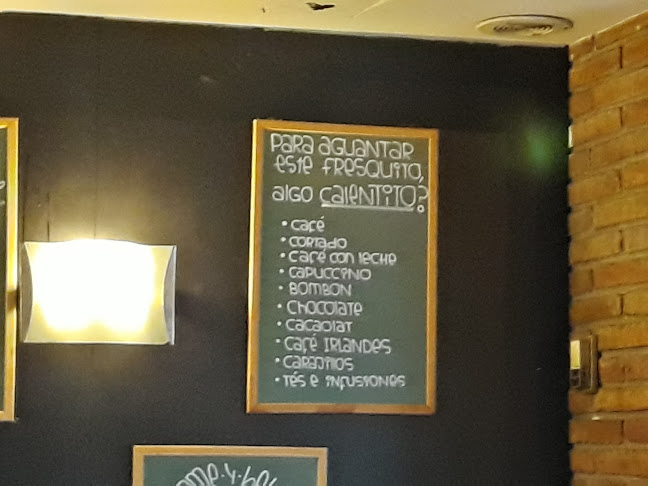 PARA AGUANTAR
ESTE FRESQUITO,
ALGO CALENTITO?
• CAFÉ
• CORTADO
• CAFÉ CON LECHE
• CAPUCCINO
• BOMBON
• CHOCOLATE
• CACAOLAT
• CAFÉ IRLANDES
• CARAJILLOS
• TÉS E INFUSIONES